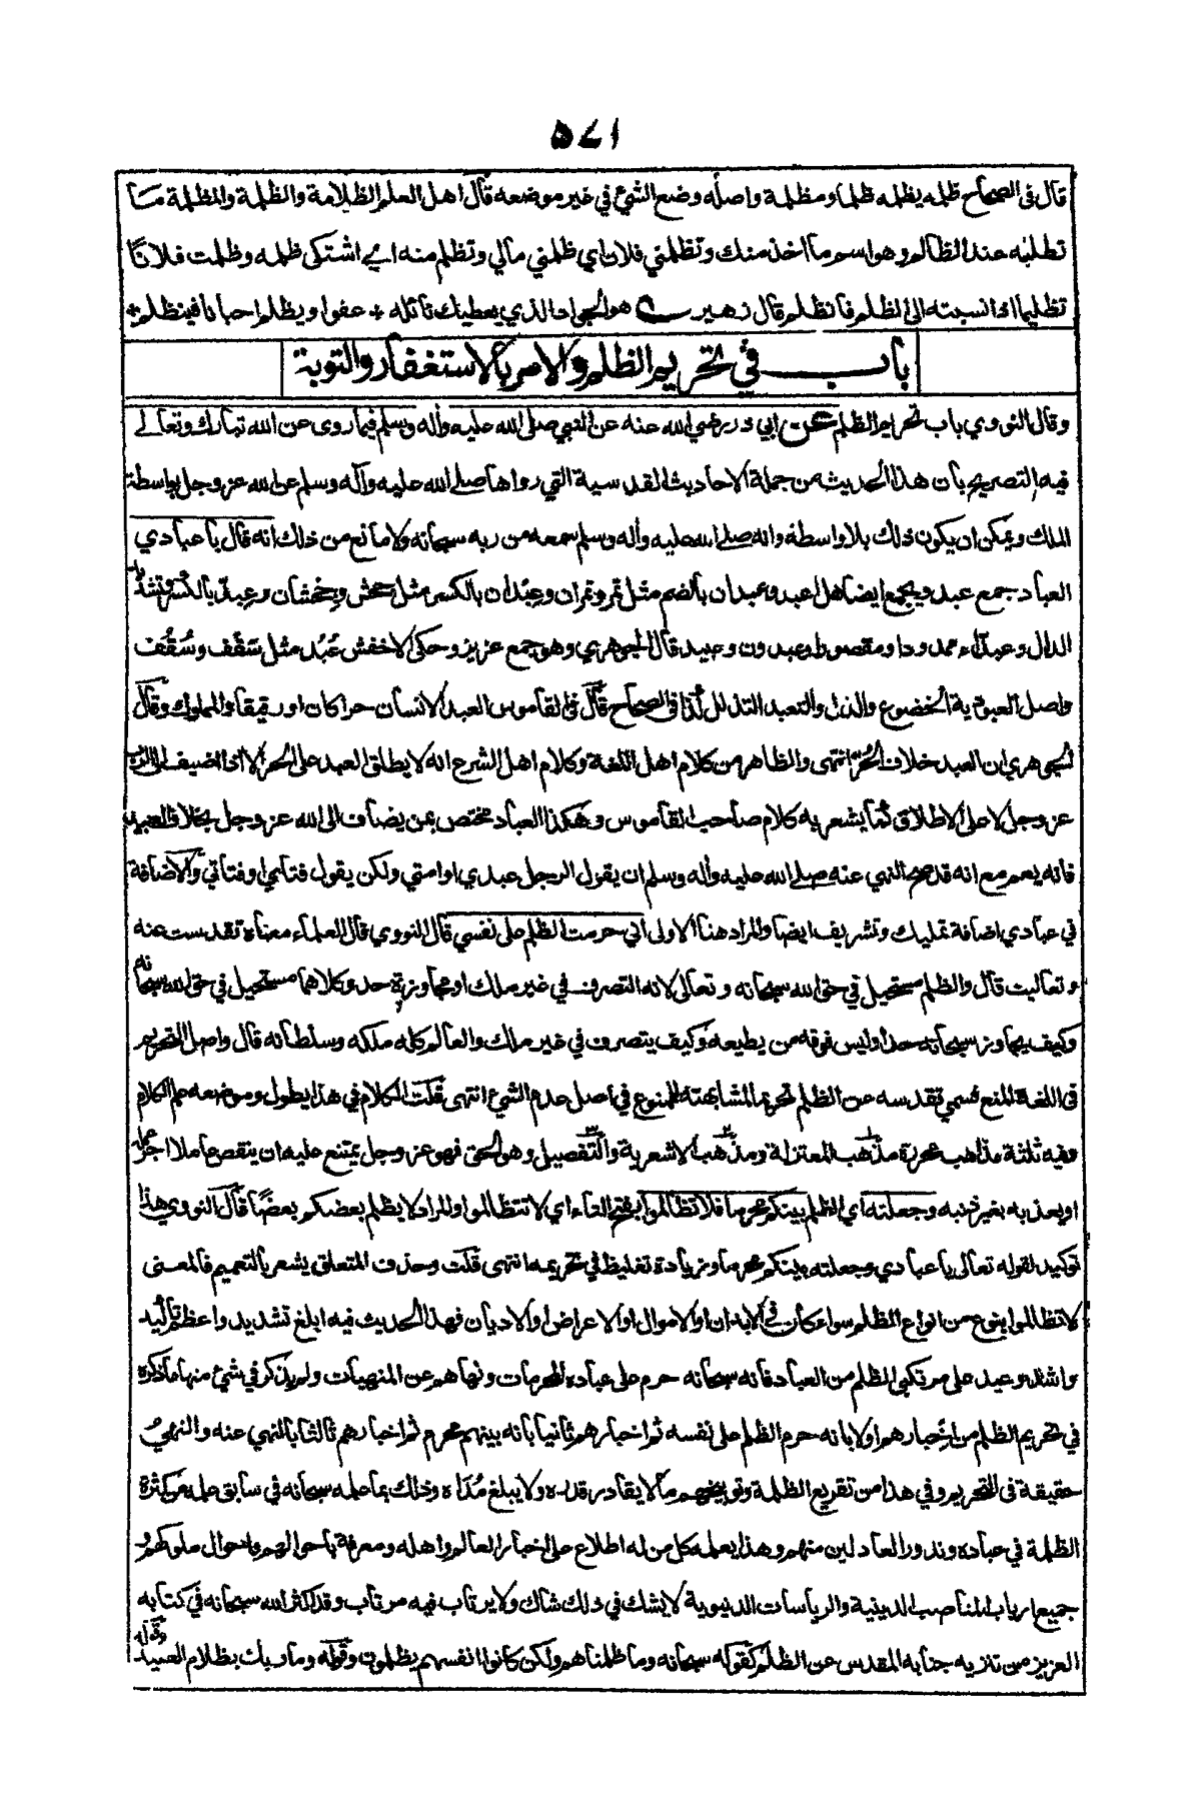 ٥٧١
قال في الصحاح ظلمه يظلمه ظلما ومظلمة واصله وضع الشيء في غير موضعه قال اهل العلم الظلامة والظلمة والمظلمة ما
تطلبه عند الظالم وهو اسم ما اخذ منك وتظلمني فلان اي ظلمني مالي وتظلم منه اي اشتكى ظلمه وظلمت فلانا
تظليما اذا نسبته الى الظلم فانظلم قال زهير هو الجواد الذي يعطيك نائله * عفوا ويظلم احيانا فينظلم *
باب في تحريم الظلم والامر بالاستغفار والتوبة
وقال النووي باب تحريم الظلم عن ابي ذر رضي الله عنه عن النبي صلى الله عليه واله وسلم فيما روى عن الله تبارك وتعالى
فيه التصريح بان هذا الحديث من جملة الاحاديث القدسية التي رواها صلى الله عليه وآله وسلم عن الله عز وجل بواسطة
الملك ويمكن ان يكون ذلك بلا واسطة وانه صلى الله عليه واله وسلم سمعه من ربه سبحانه ولا مانع من ذلك انه قال يا عبادي
العباد جمع عبد ويجمع ايضا على اعبد وعبدان بالضم مثل تمر وتمران وعبدان بالكسر مثل جحش وجحشان وعبدّان بالكسر وتشديد
الدال وعبدّاء ممدودا ومقصورا وعبدون وعبيد قال الجوهري وهو جمع عزيز وحكى الاخفش عُبُد مثل سَقْف وسُقُف
واصل العبودية الخضوع والذل والتعبد التذلل كذا في الصحاح قال في القاموس العبد الانسان حرا كان او رقيقا والمملوك وقال
الجوهري ان العبد خلاف الحرّ انتهى والظاهر من كلام اهل اللغة وكلام اهل الشرع انه لا يطلق العبد على الحر الا اذا اضيف الى الرب
عز وجل لا على الاطلاق كما يشعر به كلام صاحب القاموس وهكذا العباد مختص بمن يضاف الى الله عز وجل بخلاف العبيد
فانه يعم مع انه قد صح النهي عنه صلى الله عليه واله وسلم ان يقول الرجل عبدي او امتي ولكن يقول فتاي او فتاتي والاضافة
في عبادي اضافة تمليك وتشريف ايضا والمراد هنا الاولى اني حرمت الظلم على نفسي قال النووي قال العلماء معناه تقدست عنه
وتعاليت قال والظلم مستحيل في حق الله سبحانه وتعالى لانه التصرف في غير ملك او مجاوزة حد وكلاهما مستحيل في حق الله سبحانه
وكيف يجاوز سبحانه حدا وليس فوقه من يطيعه وكيف يتصرف في غير ملك والعالم كله ملكه وسلطانه قال واصل التحريم
في اللغة المنع فسمي تقدسه عن الظلم تحريما لمشابهته للممنوع في اصل عدم الشيء انتهى قلت الكلام في هذا يطول وموضعه علم الكلام
وفيه ثلثة مذاهب محررة مذهب المعتزلة ومذهب الاشعرية والتفصيل وهو الحق فهو عز وجل يمتنع عليه ان ينقص عاملا اجر عمله
او يعذبه بغير ذنبه وجعلته اي الظلم بينكم محرما فلا تظالموا بفتح التاء اي لا تتظالموا والمراد لا يظلم بعضكم بعضًا قال النووي هذا
توكيد لقوله تعالى يا عبادي وجعلته بينكم محرما وزيادة تغليظ في تحريمه انتهى قلت وحذف المتعلق يشعر بالتعميم فالمعنى
لا تظالموا بنوع من انواع الظلم سواء كان في الابدان او الاموال او الاعراض او الاديان فهذا الحديث فيه ابلغ تشديد واعظم تاكيد
واشد وعيد على مرتكبي الظلم من العباد فانه سبحانه حرم على عباده المحرمات ونهاهم عن المنهيات ولم يذكر في شيء منها ما ذكره
في تحريم الظلم من اخبارهم اولا بانه حرم الظلم على نفسه ثم اخبارهم ثانيا بانه بينهم محرم ثم اخبارهم ثالثا بالنهي عنه والنهيُ
حقيقة في التحريم وفي هذا من تقريع الظلمة وتوبيخهم ما لا يقادر قدره ولا يبلغ مُدَاه وذلك بما علمه سبحانه في سابق علمه من كثرة
الظلمة في عباده وندور العادلين منهم وهذا يعلمه كل من له اطلاع على اخبار العالم واهله ومعرفة باحوالهم واحوال ملوكهم و
جميع ارباب المناصب الدينية والرياسات الدنيوية لا يشك في ذلك شاك ولا يرتاب فيه مرتاب وقد اكثر الله سبحانه في كتابه
العزيز من تنزيه جنابه المقدس عن الظلم كقوله سبحانه وما ظلمناهم ولكن كانوا انفسهم يظلمون وقوله وما ربك بظلام للعبيد وقوله